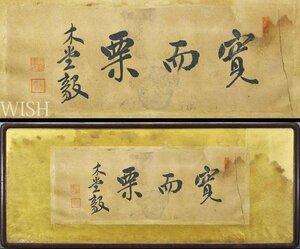 寛而栗
木堂毅
WISH
寛而栗
木堂毅